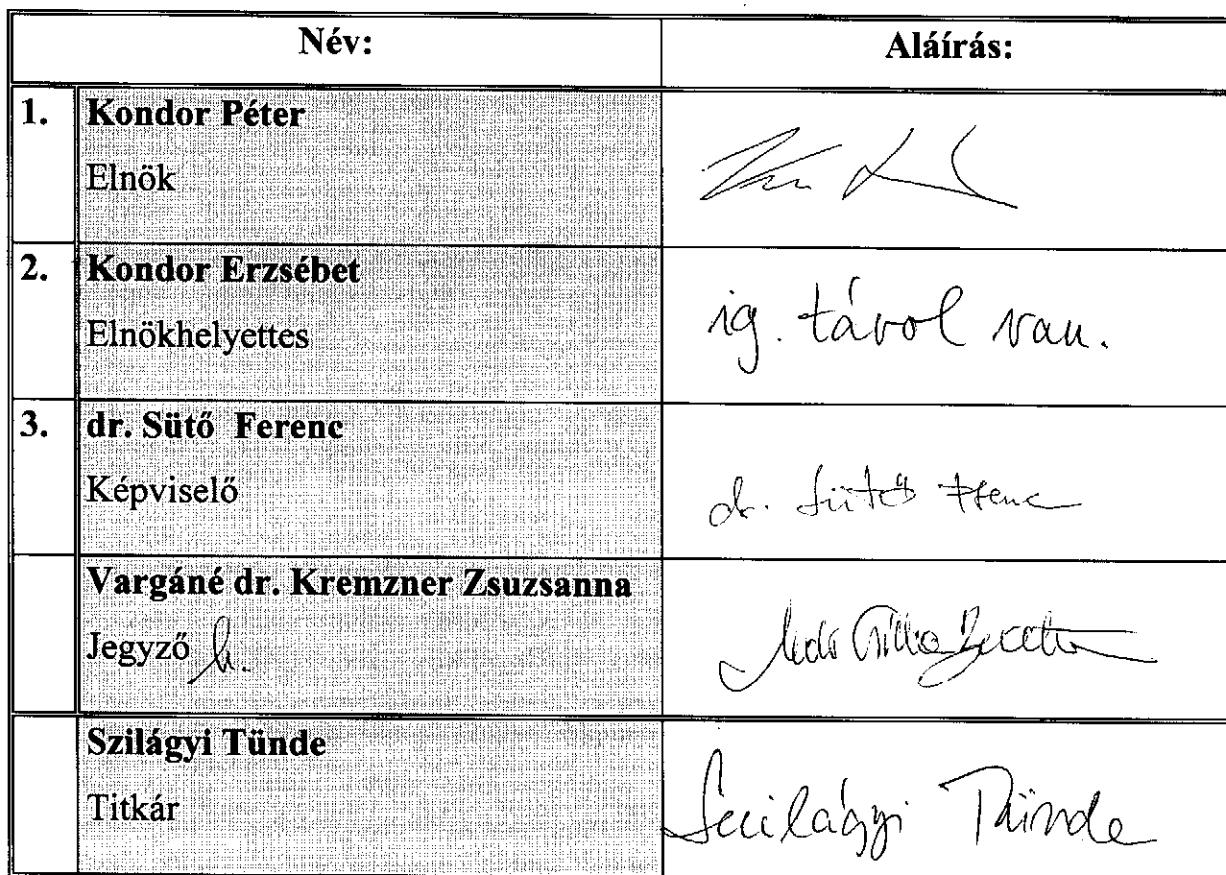 Név: Aláírás:
1. Kondor Péter
Elnök
2. Kondor Erzsébet
Elnökhelyettes
ig. távol van.
3. dr. Sütő Ferenc
Képviselő
dr. Sütő Ferenc
Vargáné dr. Kremzner Zsuzsanna
Jegyző h.
Szilágyi Tünde
Titkár
Szilágyi Tünde